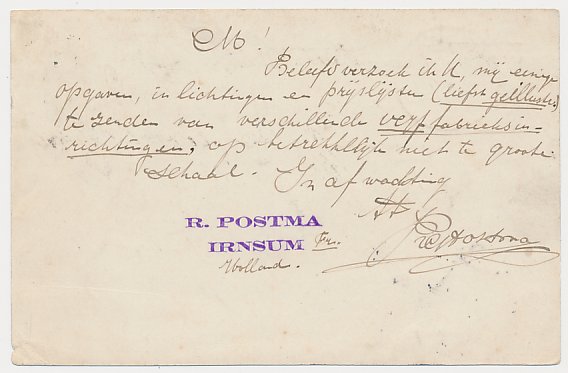 M!
Beleefd verzoek ik U, mij eenige
opgaven, inlichtingen en prijslijsten (liefst geïllustr.)
te zenden van verschillende verffabrieksin-
richtingen, op betrekkelijk niet te groote
schaal. In afwachting
R. POSTMA
IRNSUM Fr.
Holland.
R Postma